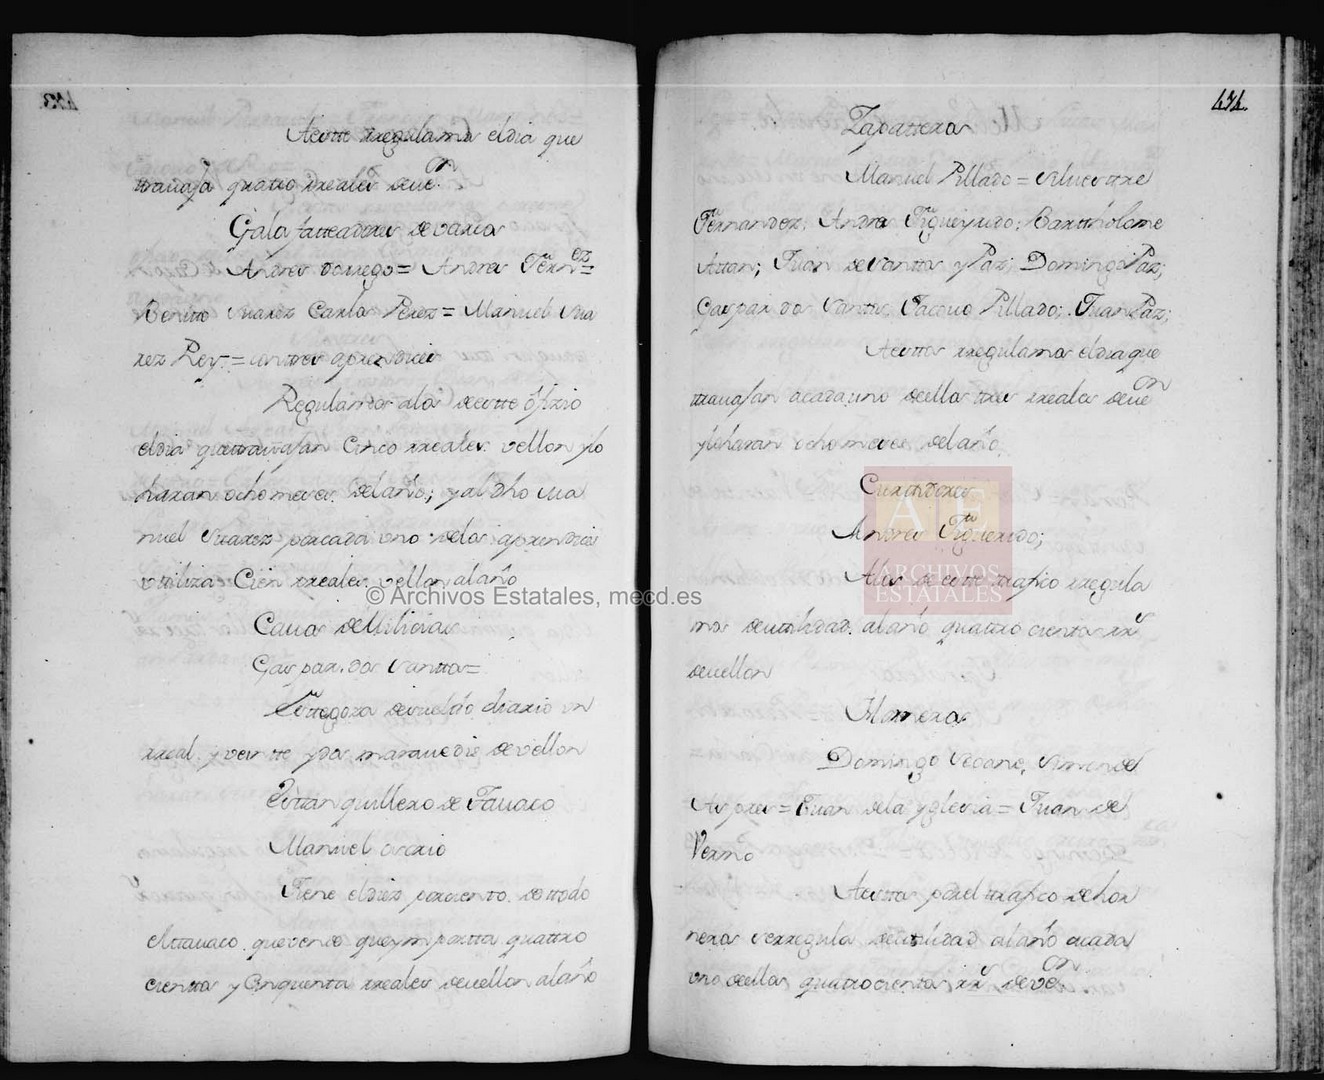 A este rregulamos el dia que
trauaja quatro rreales de ue.on
Galafatteadores de varcos
Andres Dorrego= Andres Fern.ez=
Benitto Suarez Carlos Perez= Manuel Sua
rez Rey= con tres aprendices
Regulamos alos de este ofizio
el dia que trauajan Cinco rreales vellon y lo
haran ocho meses del año; y al dho Ma
nuel Suarez por cada uno delos aprendices
vtiliza Cien rreales vellon al año
Cauos de Milicias
Gaspar dos Santtos=
de sueldo diario vn
rreal y veintte y dos marauedis de vellon
Esttanquillero de Tauaco
Manuel osorio
Tiene el diez por ciento de ttodo
el ttauaco que vende que ymportta quattro
cienttos y Cinquentta rreales de vellon al año
434.
Zapatteros
Manuel Pillado= Siluestre
Fernandez; Andres Figueyrido; Bartholome
Attan; Juan de Santtos y Paz; Domingo Paz;
Gaspar dos Santtos Jacouo Pillado; Juan Paz;
A esttos rregulamos el dia que
trauajan a cada uno de ellos tres rreales de ue on
y lo haran ocho meses del año
Curtidores
Andres Figueirido;
A los de este trafico rregula
mos de utilidad al año quattro cientos rr.s
de uellon
Horneros
Domingo Seoane, Simon del
Rio Juan de la yglesia= Juan de
Vermo
A esttos por el trafico de hor
neros se rregula de utilidad al año a cada
vno de ellos quattrocientos rr.s de ve on
© Archivos Estatales, mecd.es
AE
ARCHIVOS
ESTATALES